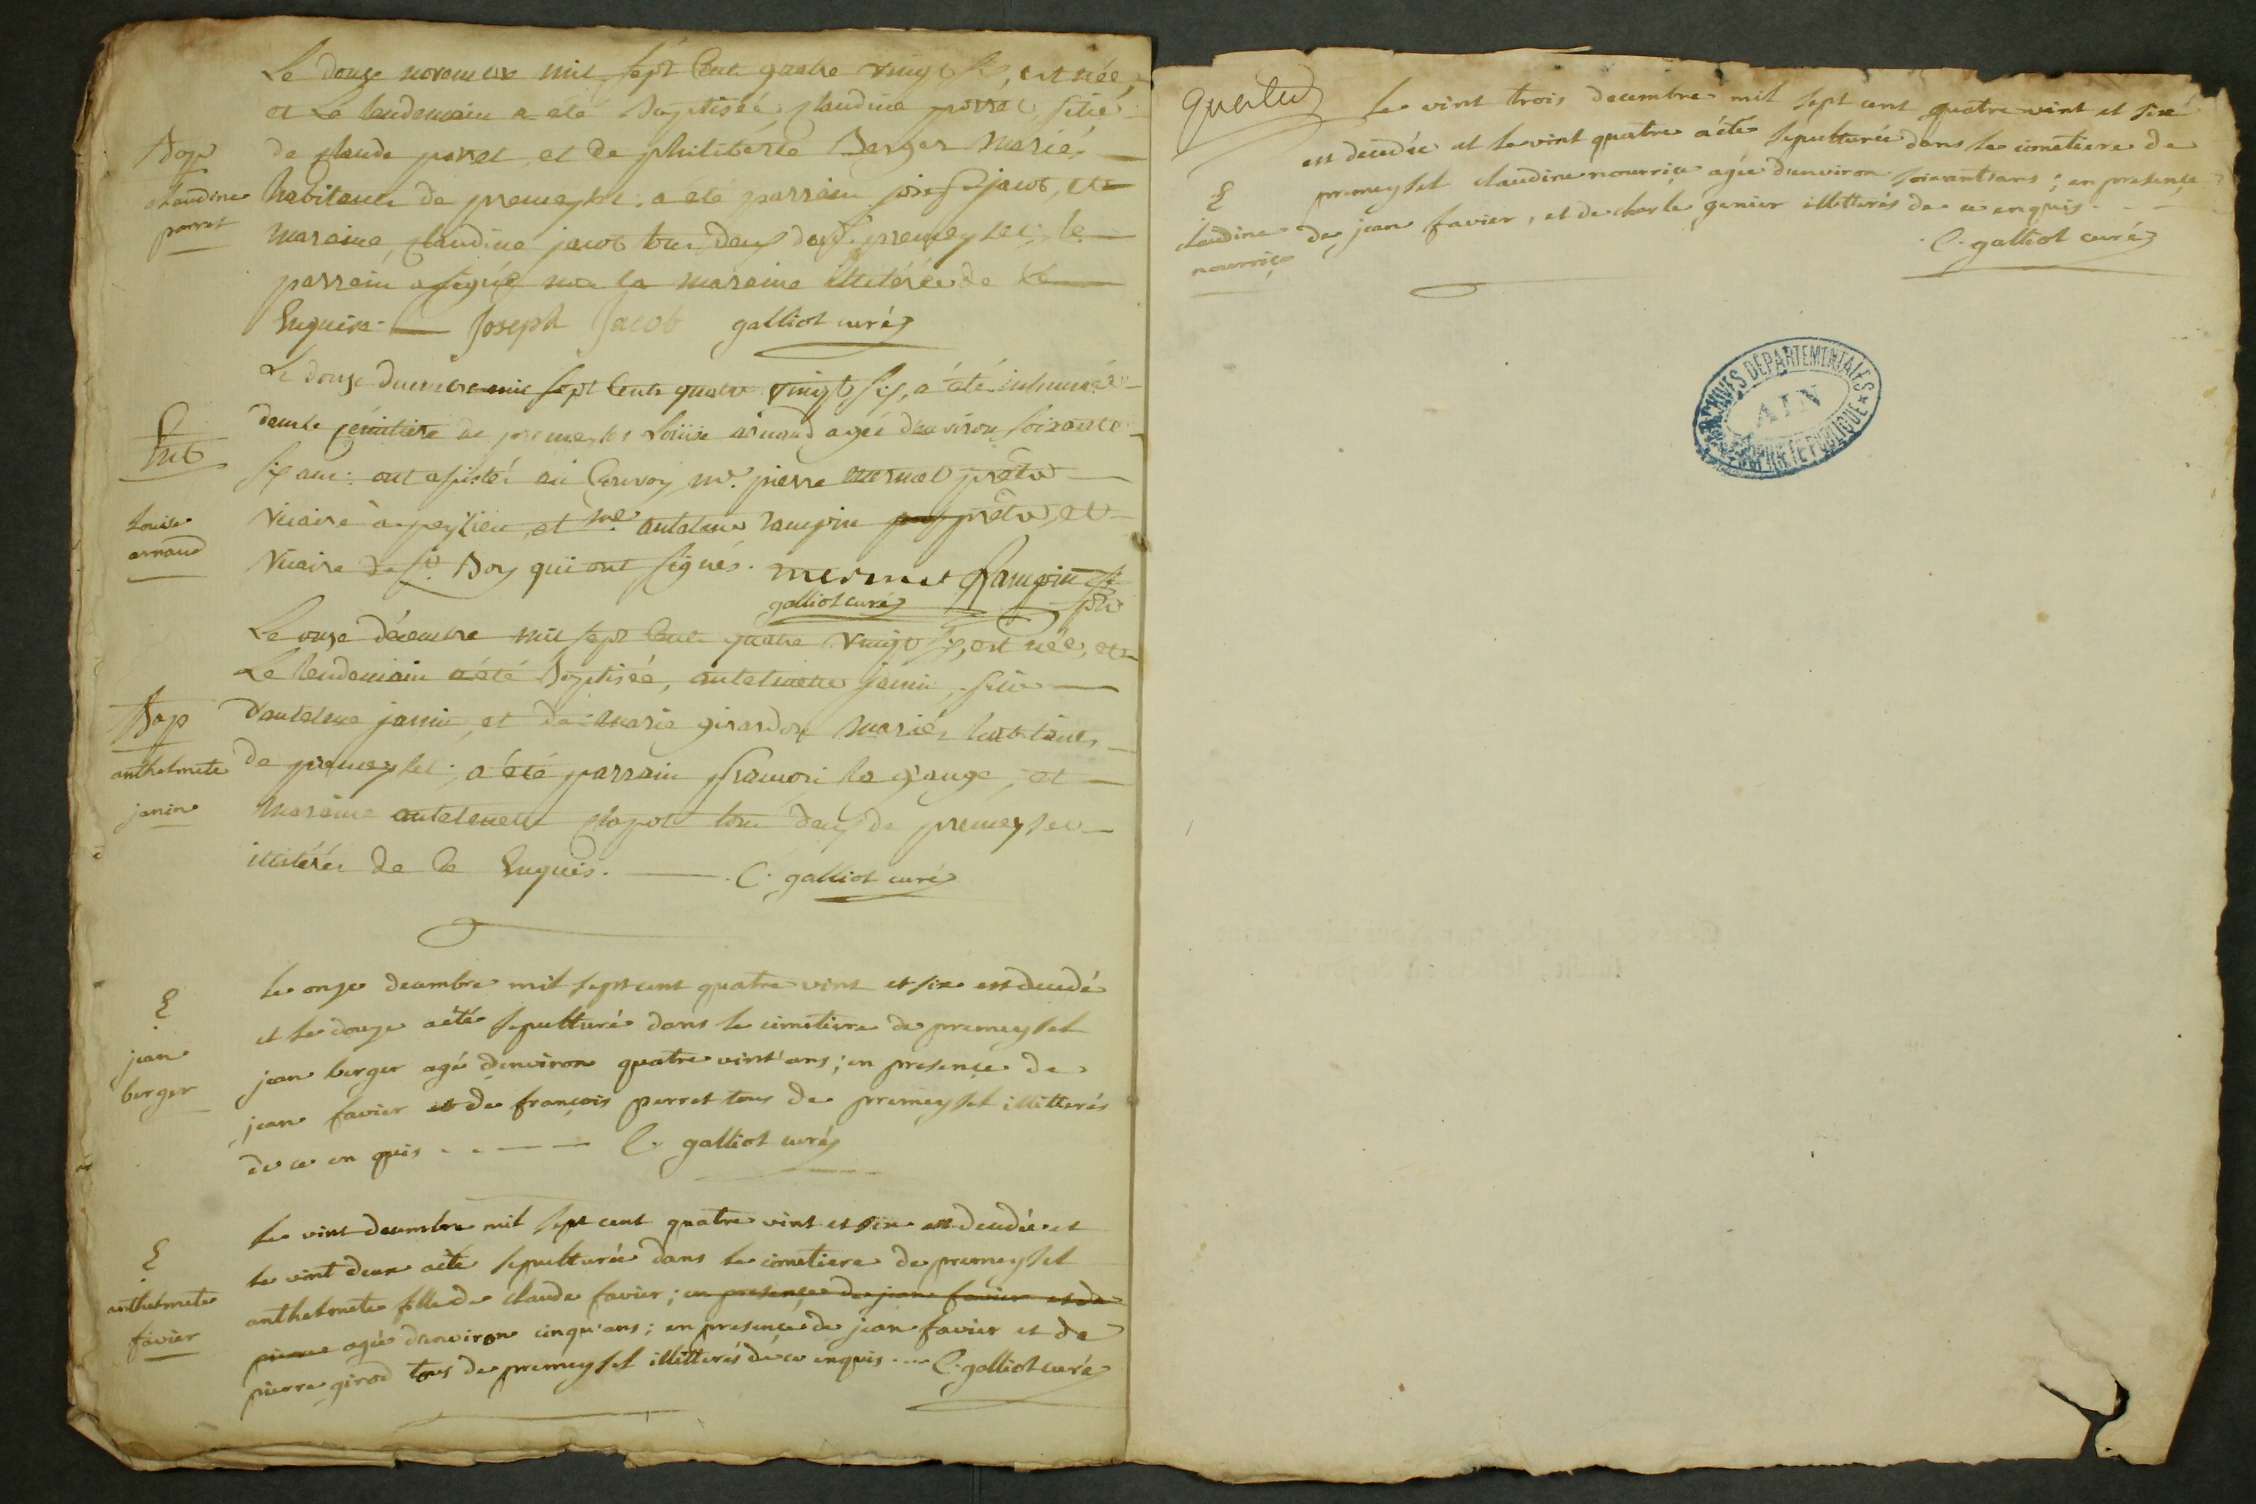 Le douze novembre mil sept Cent quatre vingt six, est née,
et Le lendemain a eté Baptisée claudine perret, fille
Bap
de claude perret, et de philiberte Berger mariés
claudine
perret
habitants de premeysel; a eté parrain joseph jacob, et
maraine claudine jacob tous deux de premeysel; le
parrain a signé non la maraine illitérée de Ce
Enquise. Joseph Jacob galliot curé
Le douze decembre mil sept Cent quatre vingt six, a été inhumée
dans le cémitiere de premeysel Louise arnaud agée d'environ soixante
Ent
six ans: ont assisté au Convoy mr. pierre mermet prêtre
Louise
arnaud
vicaire à peyzieu, et mre antelme rampin prêtre, et
vicaire de st. Boys qui ont signés. mermet Rampin
ptre
galliot curé
Le onze décembre mil sept Cent quatre vingt six, est née, et
Le lendemain a été Baptisée, antelmette janin, fille
Bap
anthelmete
janin
d'antelme janin, et de marie girardon mariés habitans
de premeysel; a été parrain francois la grange, et
maraine antelmette chapot tous deux de premeysel
illitérés de Ce Enquis. C. galliot curé
le onze decembre mil sept cent quatre vint et six est decedé
et le douze a été sepulturé dans le cimetiere de premeysel
jean
berger
jean berger agé denviron quatre vint ans; en presençe de
jean favier et de françois perret tous de premeysel illitterés
de ce en quis C. galliot curé
le vint decembre mil sept cent quatre vint et six est decedée et
le vint deux a été sepulturée dans le cimetiere de premeysel
anthelmete
favier
anthelmete fille de claude favier; en presençe de jean favier et de
pierre agée denviron cinqu'ans; en presence de jean favier et de
pierre girod tous de premeysel illitterés de ce enquis C. galliot curé
le vint trois decembre mil sept cent quatre vint et six
est decedée et le vint quatre a été sepulturée dans le cimetiere de
claudine
nourriçe
premeysel claudine nourriçe agée d'environ soixant ans; en presençe
de jean favier, et de charle genier illitterés de ce enquis
C. galliot curé
ARCHIVES DEPARTEMENTALES
AIN